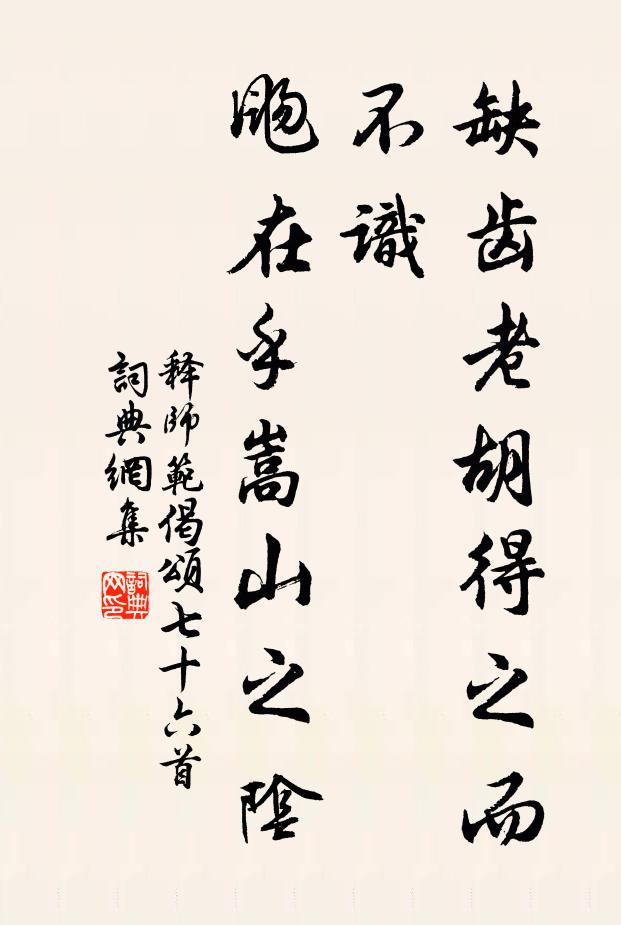 缺齿老胡得之而
不識
飏在乎嵩山之陰
释師範偈頌七十六首
詞典網集
詞典网印